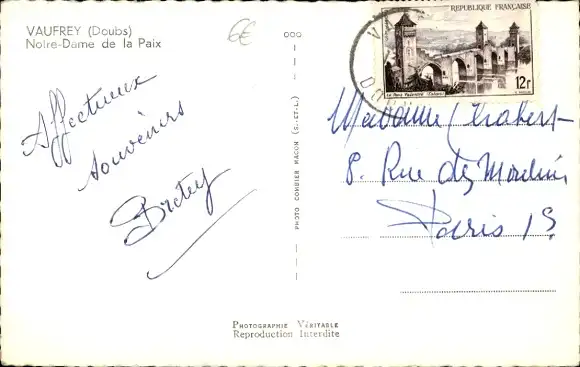 VAUFREY (Doubs)
Notre-Dame de la Paix
6€
Affectueux
souvenirs
PHOTO COMBIER MACON (S.-ET-L.)
RÉPUBLIQUE FRANÇAISE
Le Pont Valentré (Cahors)
12f
Madame
8. Rue des Moulins
Paris 1
PHOTOGRAPHIE VÉRITABLE
Reproduction Interdite